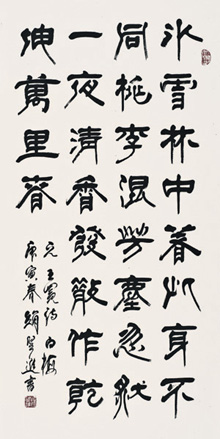 冰雪林中著此身不
同桃李混芳塵忽然
一夜清香發散作乾
坤萬里春
元王冕詩白梅
庚寅春書